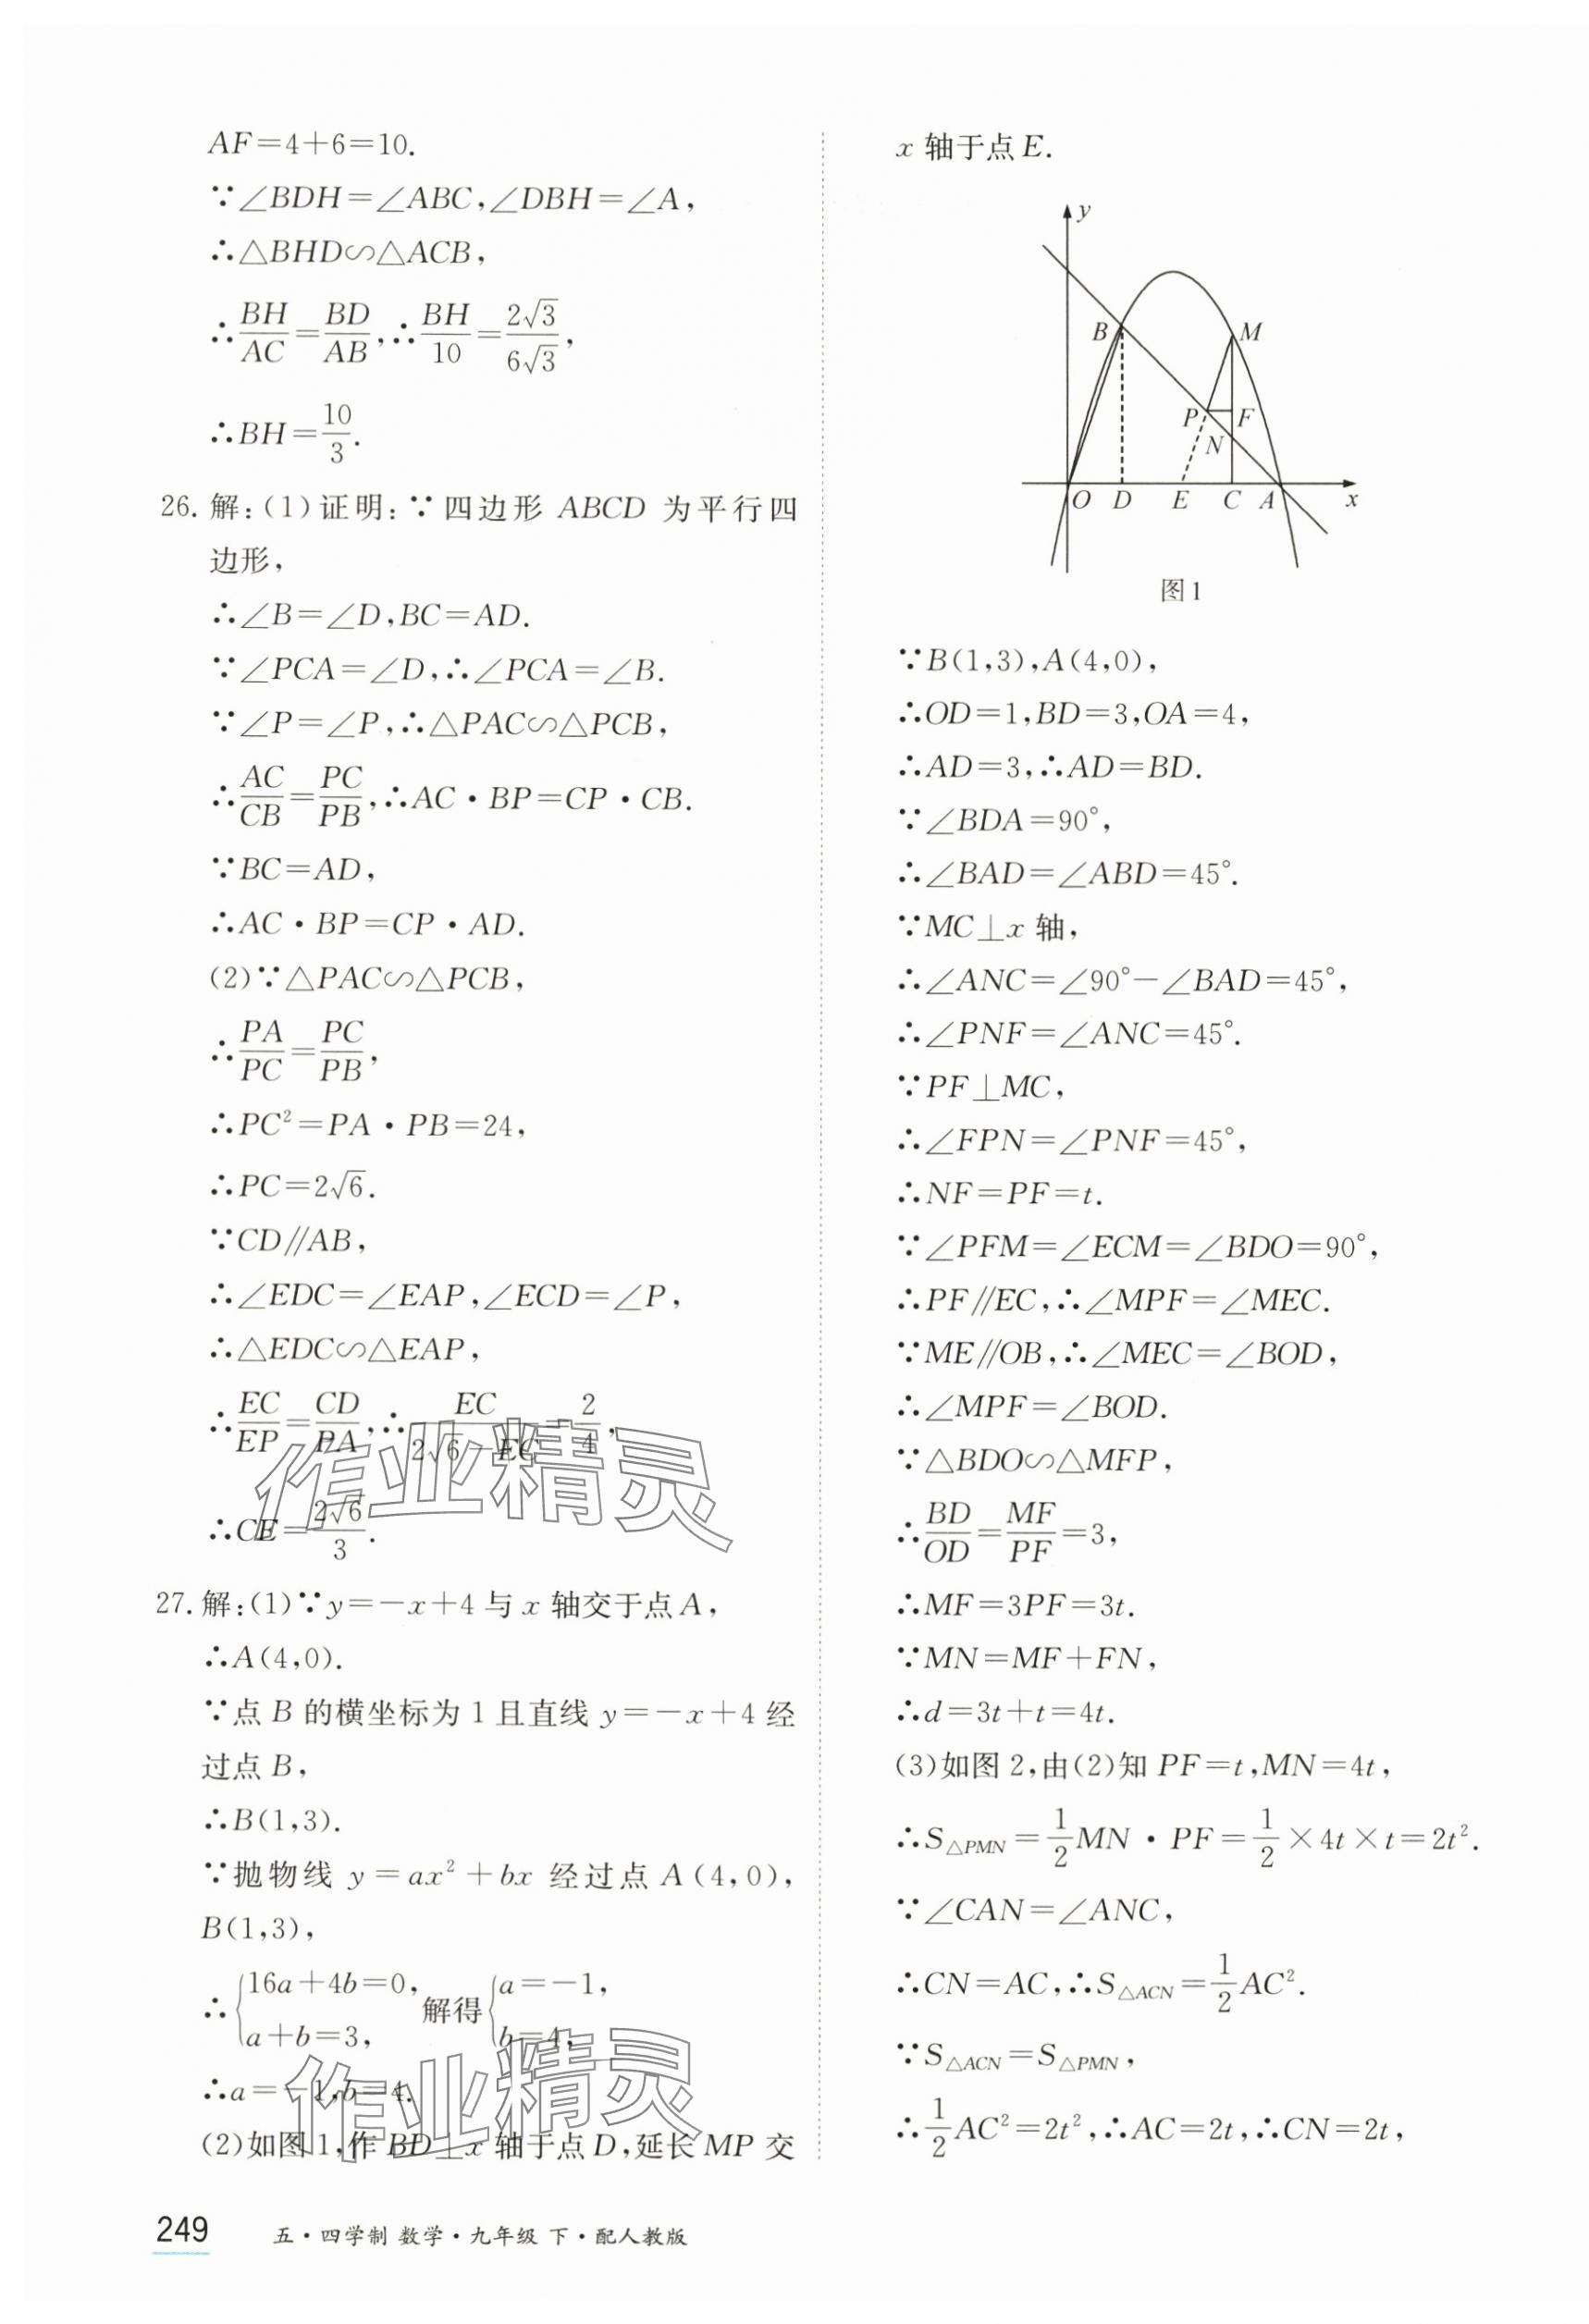 AF=4+6=10.
∵∠BDH=∠ABC,∠DBH=∠A,
∴△BHD∽△ACB,
∴BH/AC=BD/AB,∴BH/10=2√3/6√3,
∴BH=10/3.
26. 解:(1)证明:∵四边形 ABCD 为平行四
边形,
∴∠B=∠D,BC=AD.
∵∠PCA=∠D,∴∠PCA=∠B.
∵∠P=∠P,∴△PAC∽△PCB,
∴AC/CB=PC/PB,∴AC·BP=CP·CB.
∵BC=AD,
∴AC·BP=CP·AD.
(2)∵△PAC∽△PCB,
∴PA/PC=PC/PB,
∴PC²=PA·PB=24,
∴PC=2√6.
∵CD∥AB,
∴∠EDC=∠EAP,∠ECD=∠P,
∴△EDC∽△EAP,
∴EC/EP=CD/PA,∴EC/(2√6-EC)=2/4,
∴CE=2√6/3.
作业精灵
27. 解:(1)∵y=-x+4 与 x 轴交于点 A,
∴A(4,0).
∵点 B 的横坐标为 1 且直线 y=-x+4 经
过点 B,
∴B(1,3).
∵抛物线 y=ax²+bx 经过点 A(4,0),
B(1,3),
∴{16a+4b=0, a+b=3, 解得{a=-1, b=4,
∴a=-1,b=4.
作业精灵
(2)如图 1,作 BD⊥x 轴于点 D,延长 MP 交
x 轴于点 E.
y
B
M
P
F
N
O D E C A x
图1
∵B(1,3),A(4,0),
∴OD=1,BD=3,OA=4,
∴AD=3,∴AD=BD.
∵∠BDA=90°,
∴∠BAD=∠ABD=45°.
∵MC⊥x 轴,
∴∠ANC=∠90°-∠BAD=45°,
∴∠PNF=∠ANC=45°.
∵PF⊥MC,
∴∠FPN=∠PNF=45°,
∴NF=PF=t.
∵∠PFM=∠ECM=∠BDO=90°,
∴PF∥EC,∴∠MPF=∠MEC.
∵ME∥OB,∴∠MEC=∠BOD,
∴∠MPF=∠BOD.
∵△BDO∽△MFP,
∴BD/OD=MF/PF=3,
∴MF=3PF=3t.
∵MN=MF+FN,
∴d=3t+t=4t.
(3)如图 2,由(2)知 PF=t,MN=4t,
∴S△PMN=1/2MN·PF=1/2×4t×t=2t².
∵∠CAN=∠ANC,
∴CN=AC,∴S△ACN=1/2AC².
∵S△ACN=S△PMN,
∴1/2AC²=2t²,∴AC=2t,∴CN=2t,
249 五·四学制 数学·九年级 下·配人教版